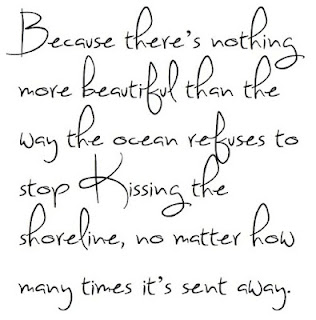 Because there's nothing
more beautiful than the
way the ocean refuses to
stop Kissing the
shoreline, no matter how
many times it's sent away.